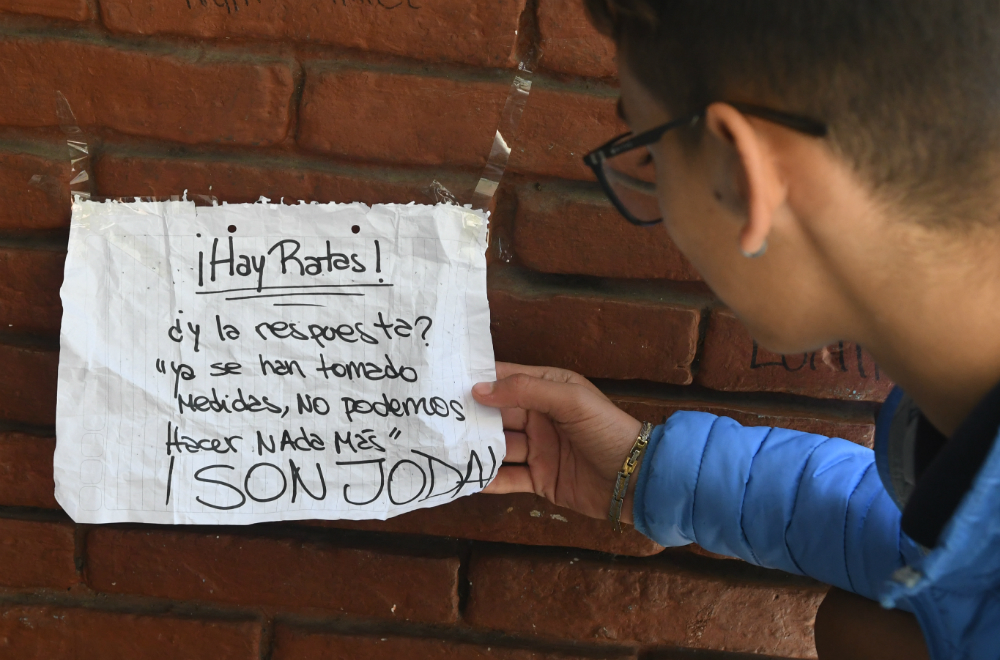 ¡Hay Ratas!
¿y la respuesta?
"ya se han tomado
Medidas, NO podemos
Hacer NAda Más"
¡SON JODA!